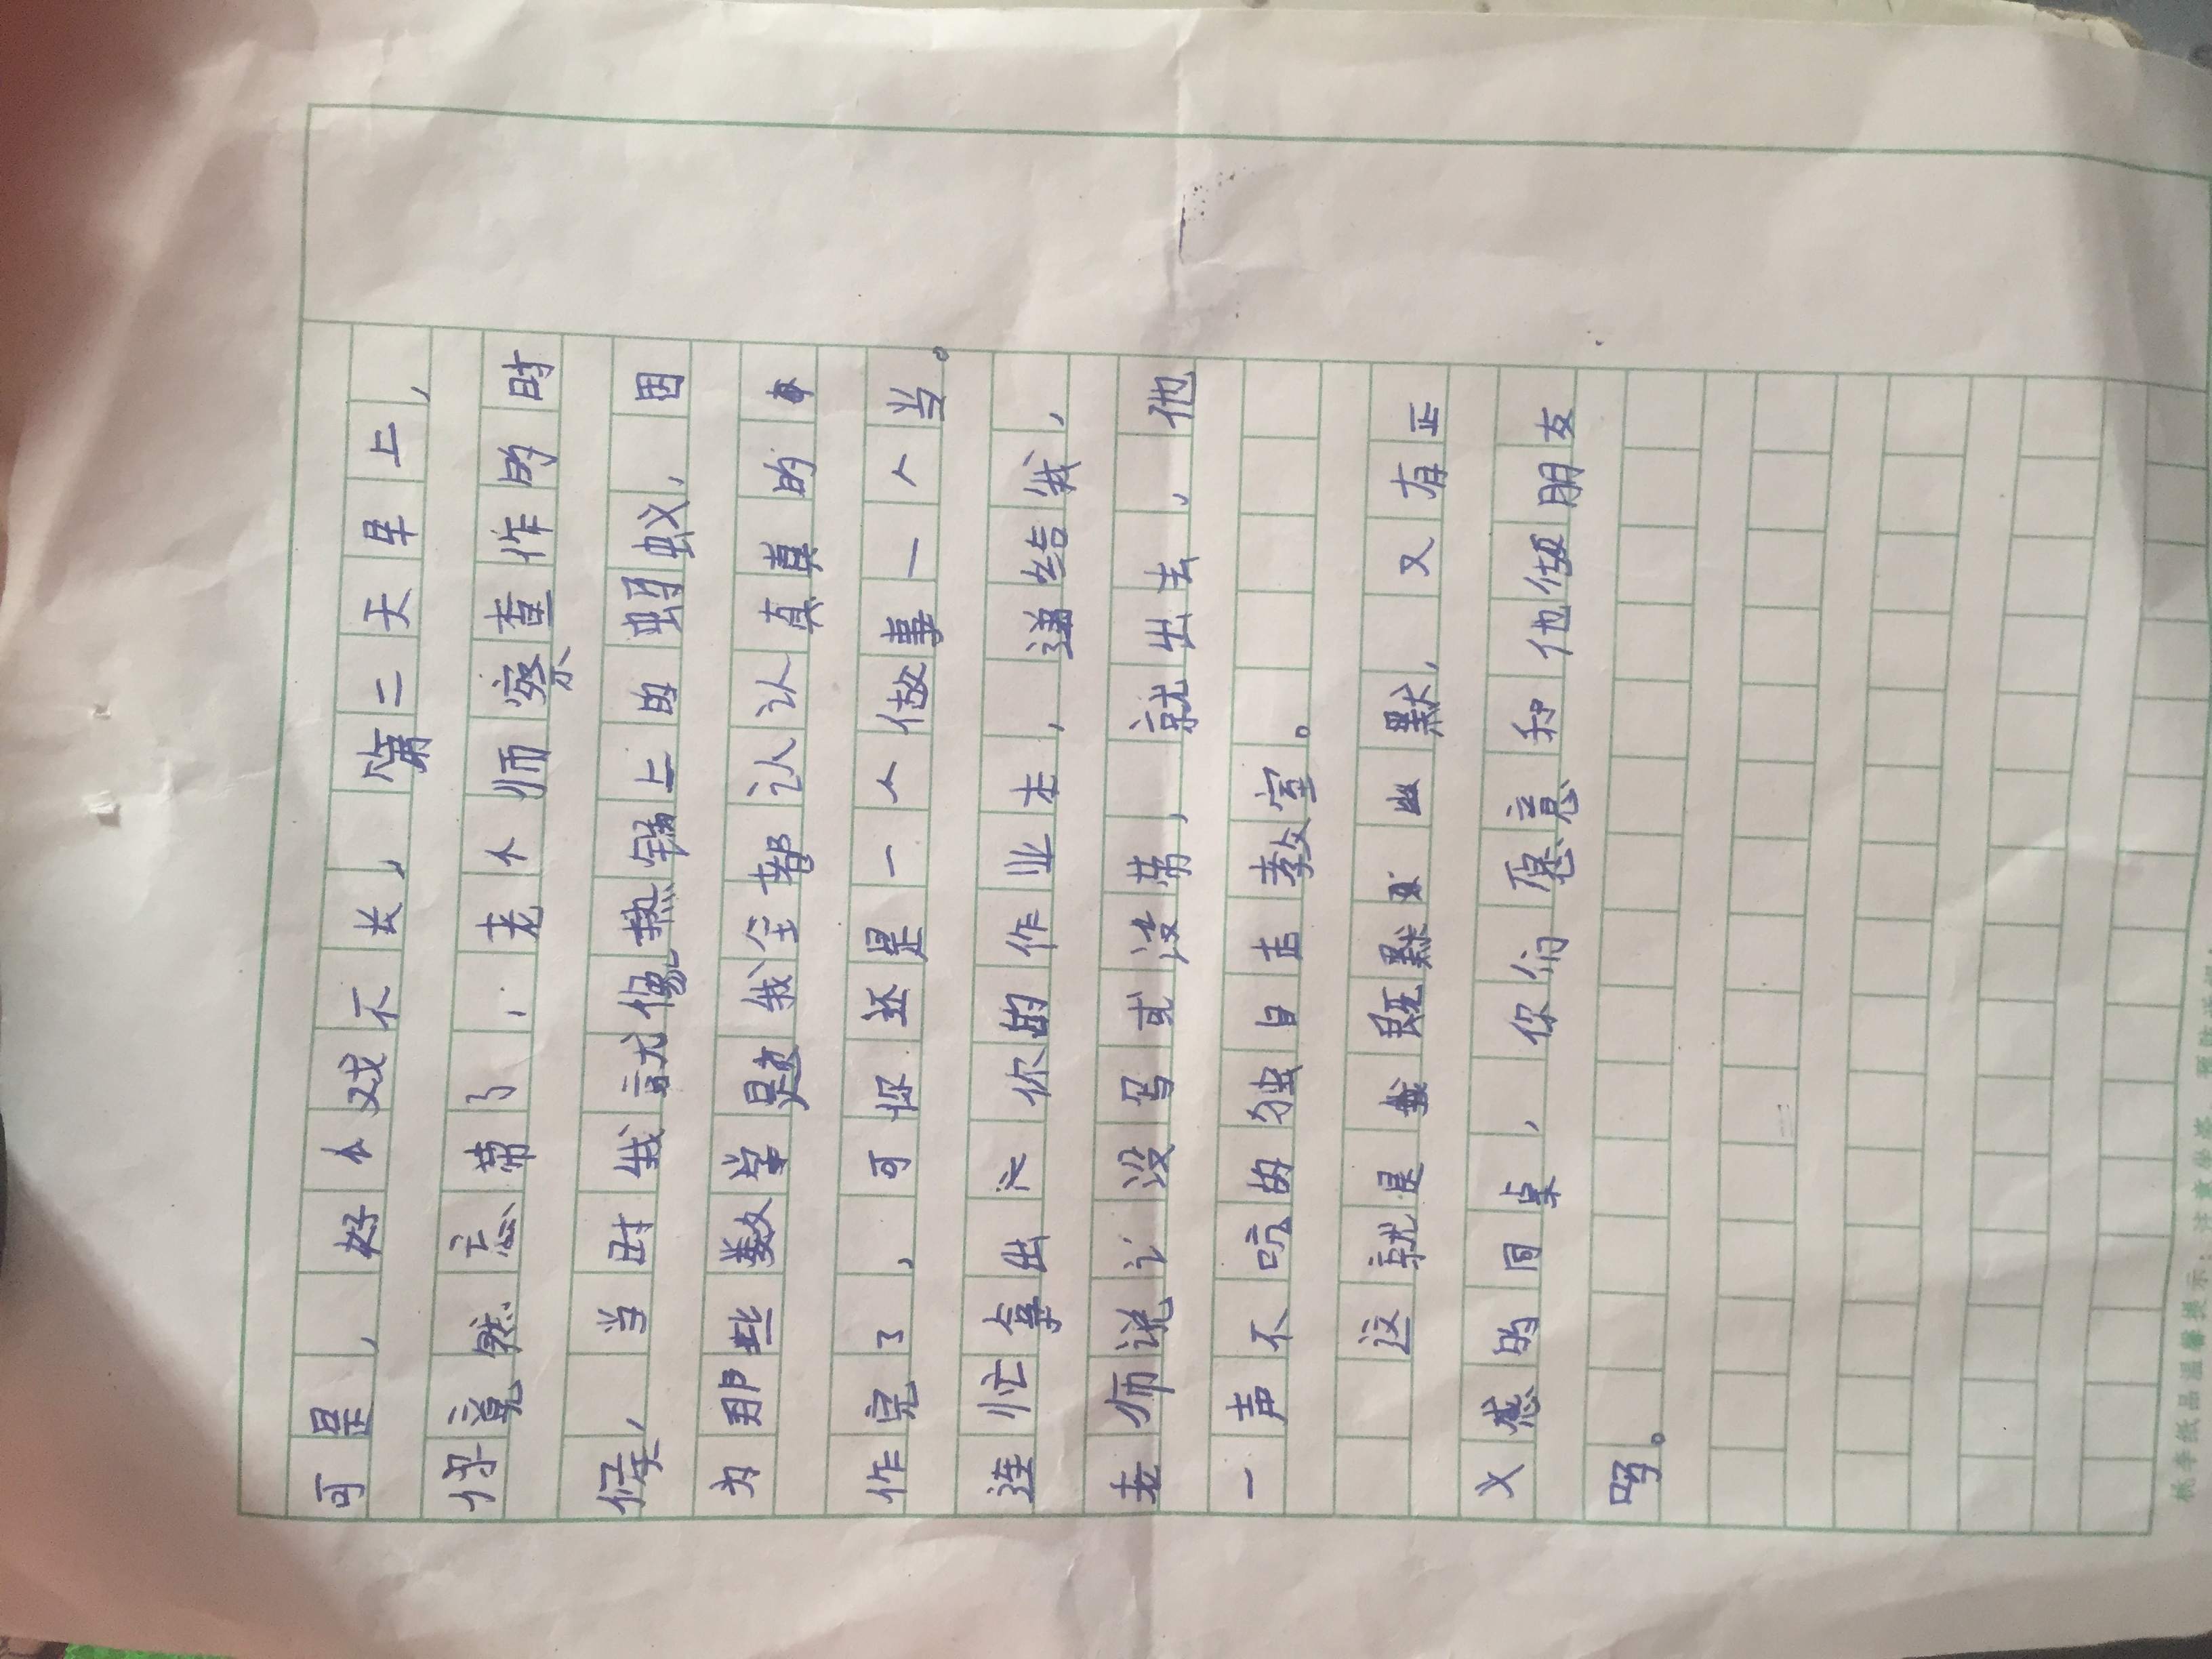 可是,好个戏不长,第二天早上,
俘竟然忘带了,老个师察查作的时
候,当时我就像热锅上的蚂蚁,因
为那些数学是我全都认认真真的
作完了,可你还是一人做事一人当。
连忙拿出 你的作业本,递给我,
老师说 没写或没带,就出去,他
一声不吭的独自走教室。
这就是 既默 幽默,又有正
义感的同桌,你们愿意和他做朋友
吗。